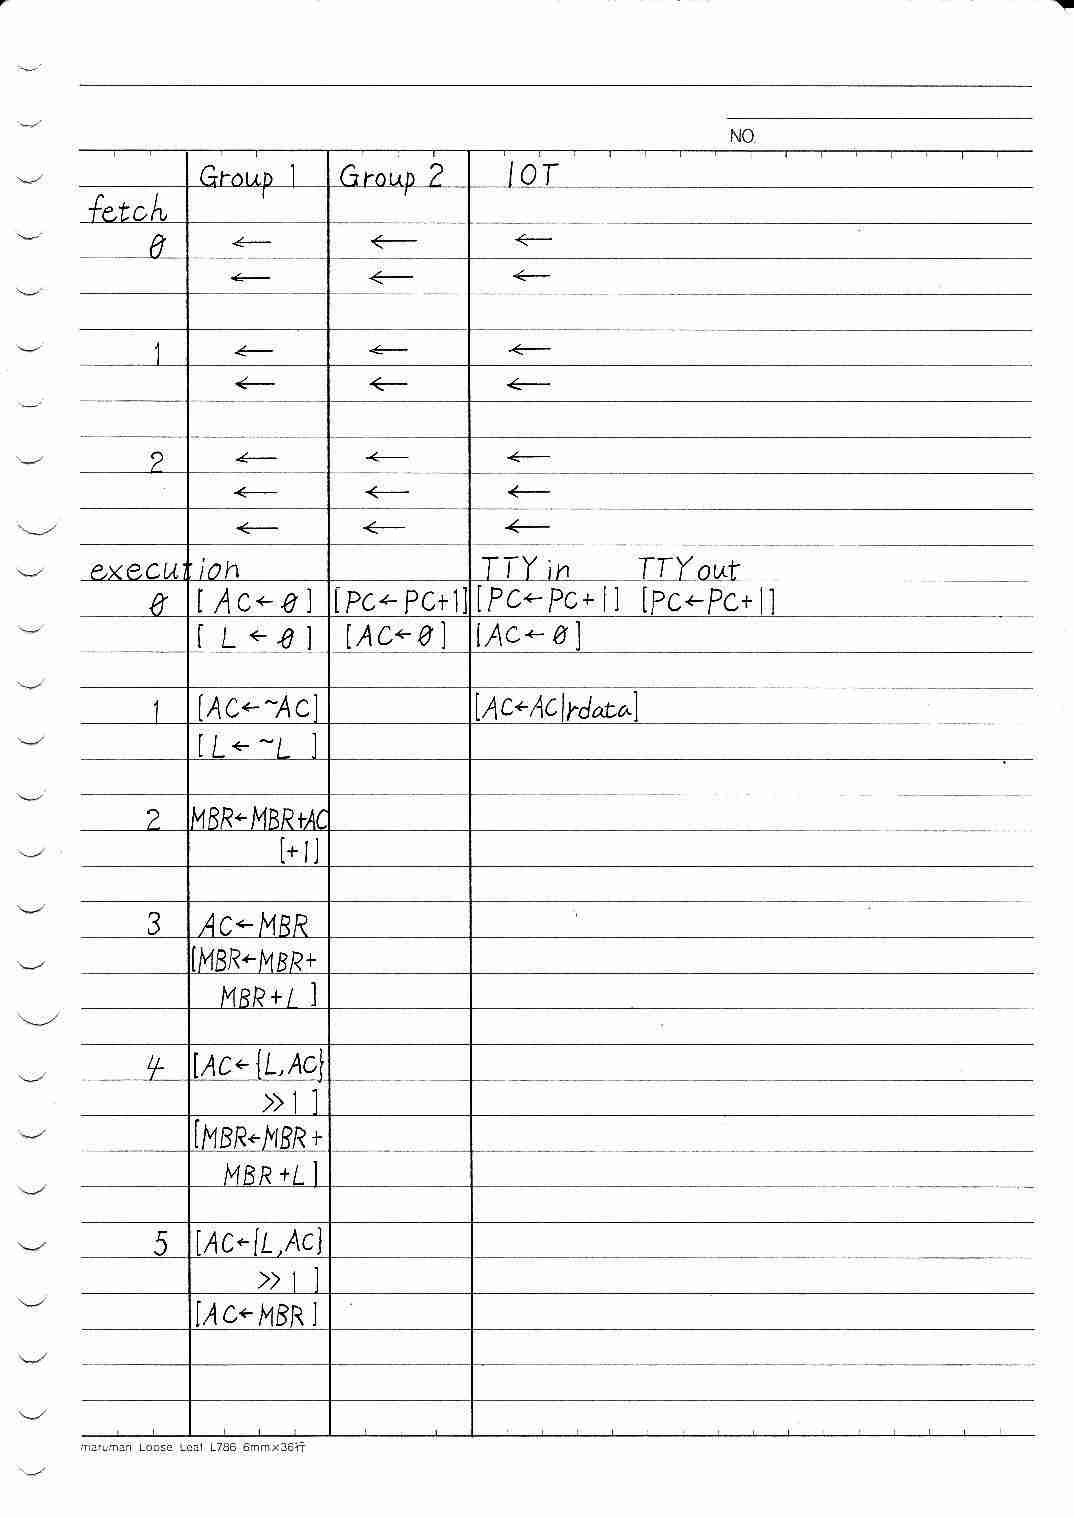 NO.
Group 1 Group 2 IOT
fetch
0 ← ← ←
← ← ←
1 ← ← ←
← ← ←
2 ← ← ←
← ← ←
← ← ←
execution TTY in TTY out
0 [AC←0] [PC←PC+1] [PC←PC+1] [PC←PC+1]
[L←0] [AC←0] [AC←0]
1 [AC←~AC] [AC←AC|rdata]
[L←~L ]
2 MBR←MBR+AC
[+1]
3 AC←MBR
[MBR←MBR+
MBR+L ]
4 [AC←{L,AC}
>>1 ]
[MBR←MBR+
MBR+L]
5 [AC←{L,AC}
>>1 ]
[AC←MBR]
maruman Loose Leaf L786 6mm×36行